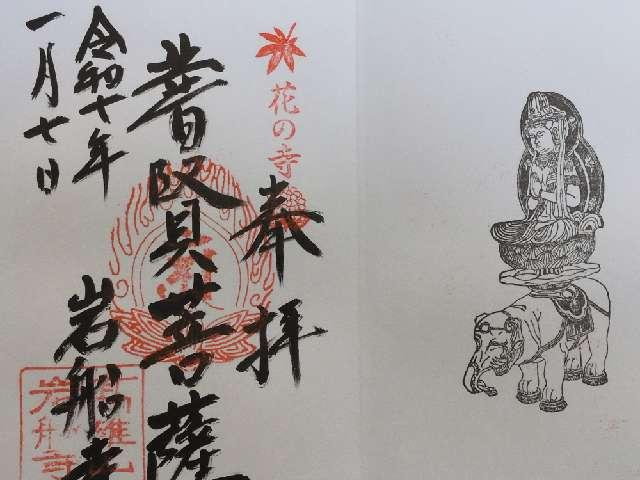 花の寺
奉拝
普賢菩薩
岩船寺
令和七年
一月七日
岩船寺